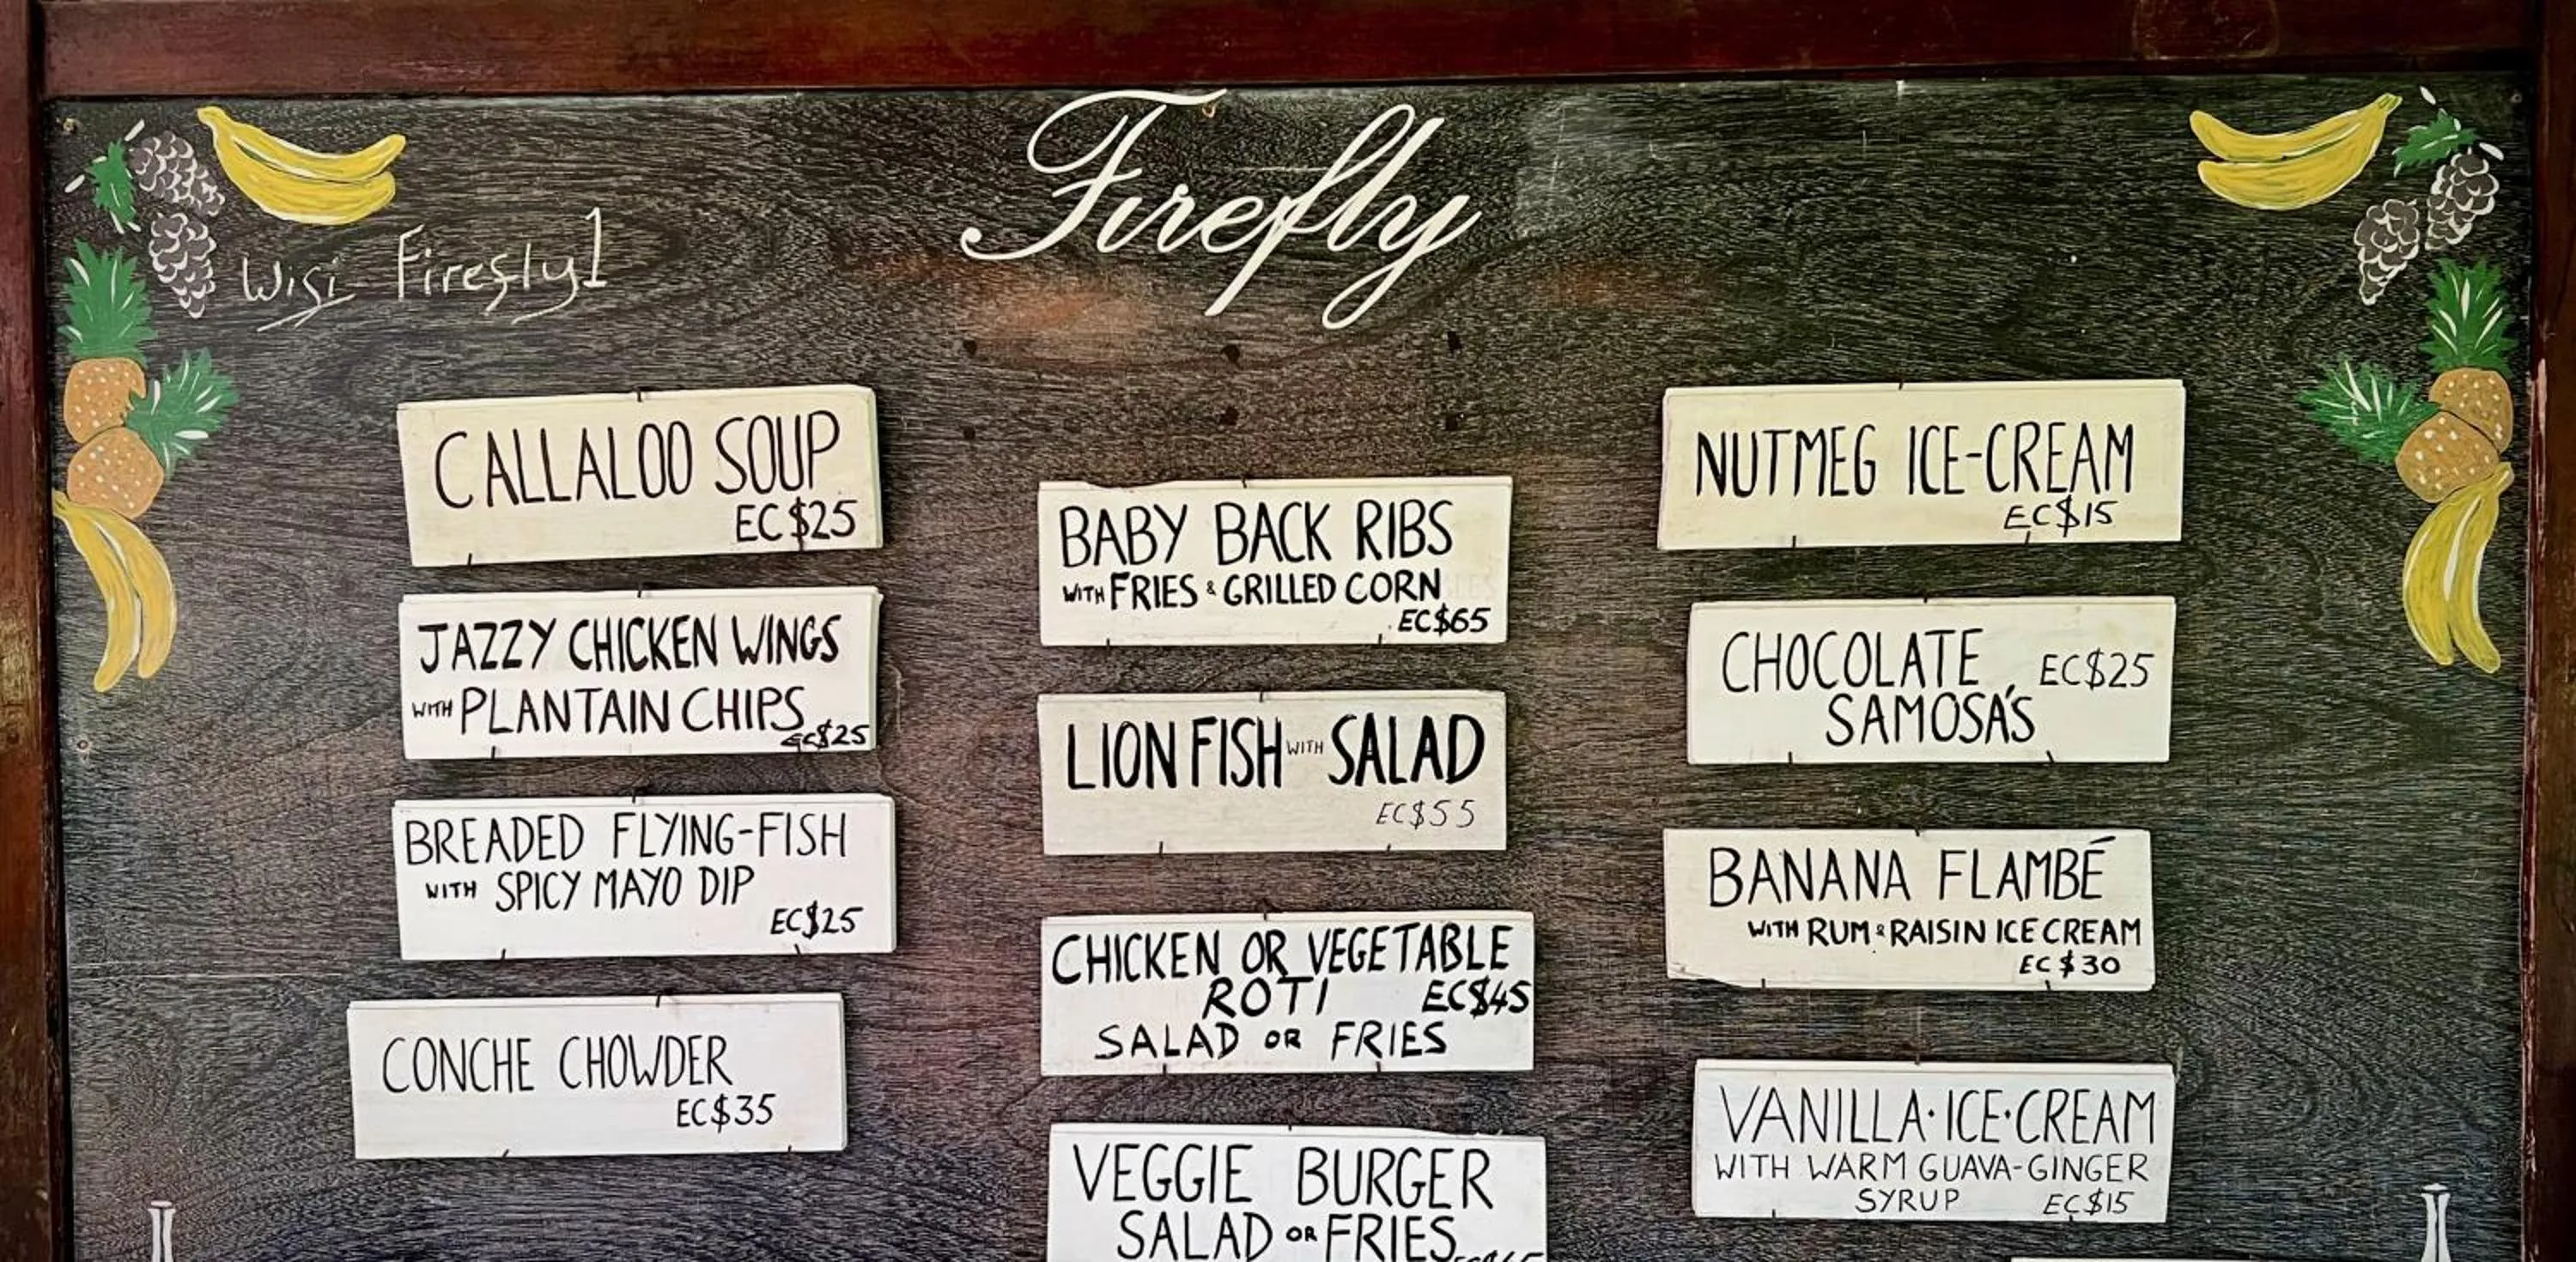 Firefly
Wifi- Firefly1
CALLALOO SOUP
EC$25
JAZZY CHICKEN WINGS
WITH PLANTAIN CHIPS
EC$25
BREADED FLYING-FISH
WITH SPICY MAYO DIP
EC$25
CONCHE CHOWDER
EC$35
BABY BACK RIBS
WITH FRIES & GRILLED CORN
EC$65
LION FISH WITH SALAD
EC$55
CHICKEN OR VEGETABLE
ROTI EC$45
SALAD OR FRIES
VEGGIE BURGER
SALAD OR FRIES
NUTMEG ICE-CREAM
EC$15
CHOCOLATE EC$25
SAMOSA'S
BANANA FLAMBÉ
WITH RUM & RAISIN ICE CREAM
EC$30
VANILLA·ICE·CREAM
WITH WARM GUAVA-GINGER
SYRUP EC$15